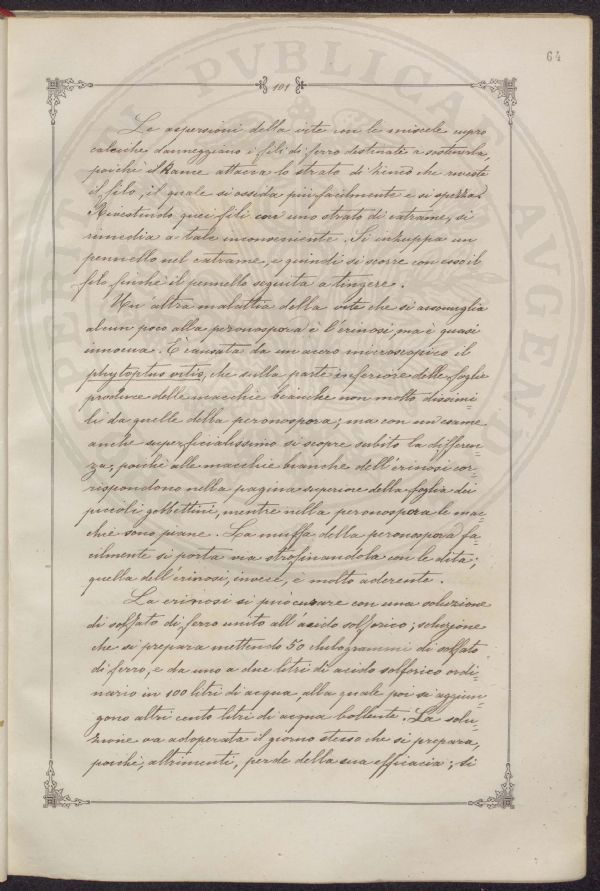 64
101
Le aspersioni della vite con le miscele cupro
calciche danneggiano i fili di ferro destinati a sostenerla,
poichè il Rame attacca lo strato di zinco che riveste
il filo, il quale si ossida più facilmente e si spezza.
Rivestendo quei fili con uno strato di catrame, si
rimedia a tale inconveniente. Si inzuppa un
pennello nel catrame, e quindi si scorre con esso il
filo finchè il pennello seguita a tingere.
Un'altra malattia della vite che si assomiglia
alcun poco alla peronospora è l'erinosi, ma è quasi
innocua. È causata da un acaro microscopico il
phytoptus vitis, che sulla parte inferiore delle foglie
produce delle macchie bianche non molto dissimi-
li da quelle della peronospora; ma con un esame
anche superficialissimo si scopre subito la differen-
za, poichè alle macchie bianche dell'erinosi cor-
rispondono nella pagina superiore della foglia dei
piccoli gobbettini, mentre nella peronospora le mac-
chie sono piane. La muffa della peronospora fa-
cilmente si porta via strofinandola con le dita;
quella dell'erinosi, invece, è molto aderente.
La erinosi si può curare con una soluzione
di solfato di ferro unito all'acido solforico; soluzione
che si prepara mettendo 50 chilogrammi di solfato
di ferro, e da uno a due litri di acido solforico ordi-
nario in 100 litri di acqua, alla quale poi si aggiun-
gono altri cento litri di acqua bollente. La solu-
zione va adoperata il giorno stesso che si prepara,
poichè, altrimenti, perde della sua efficacia; si
PERITALI PVBLICAE AVGENDAE